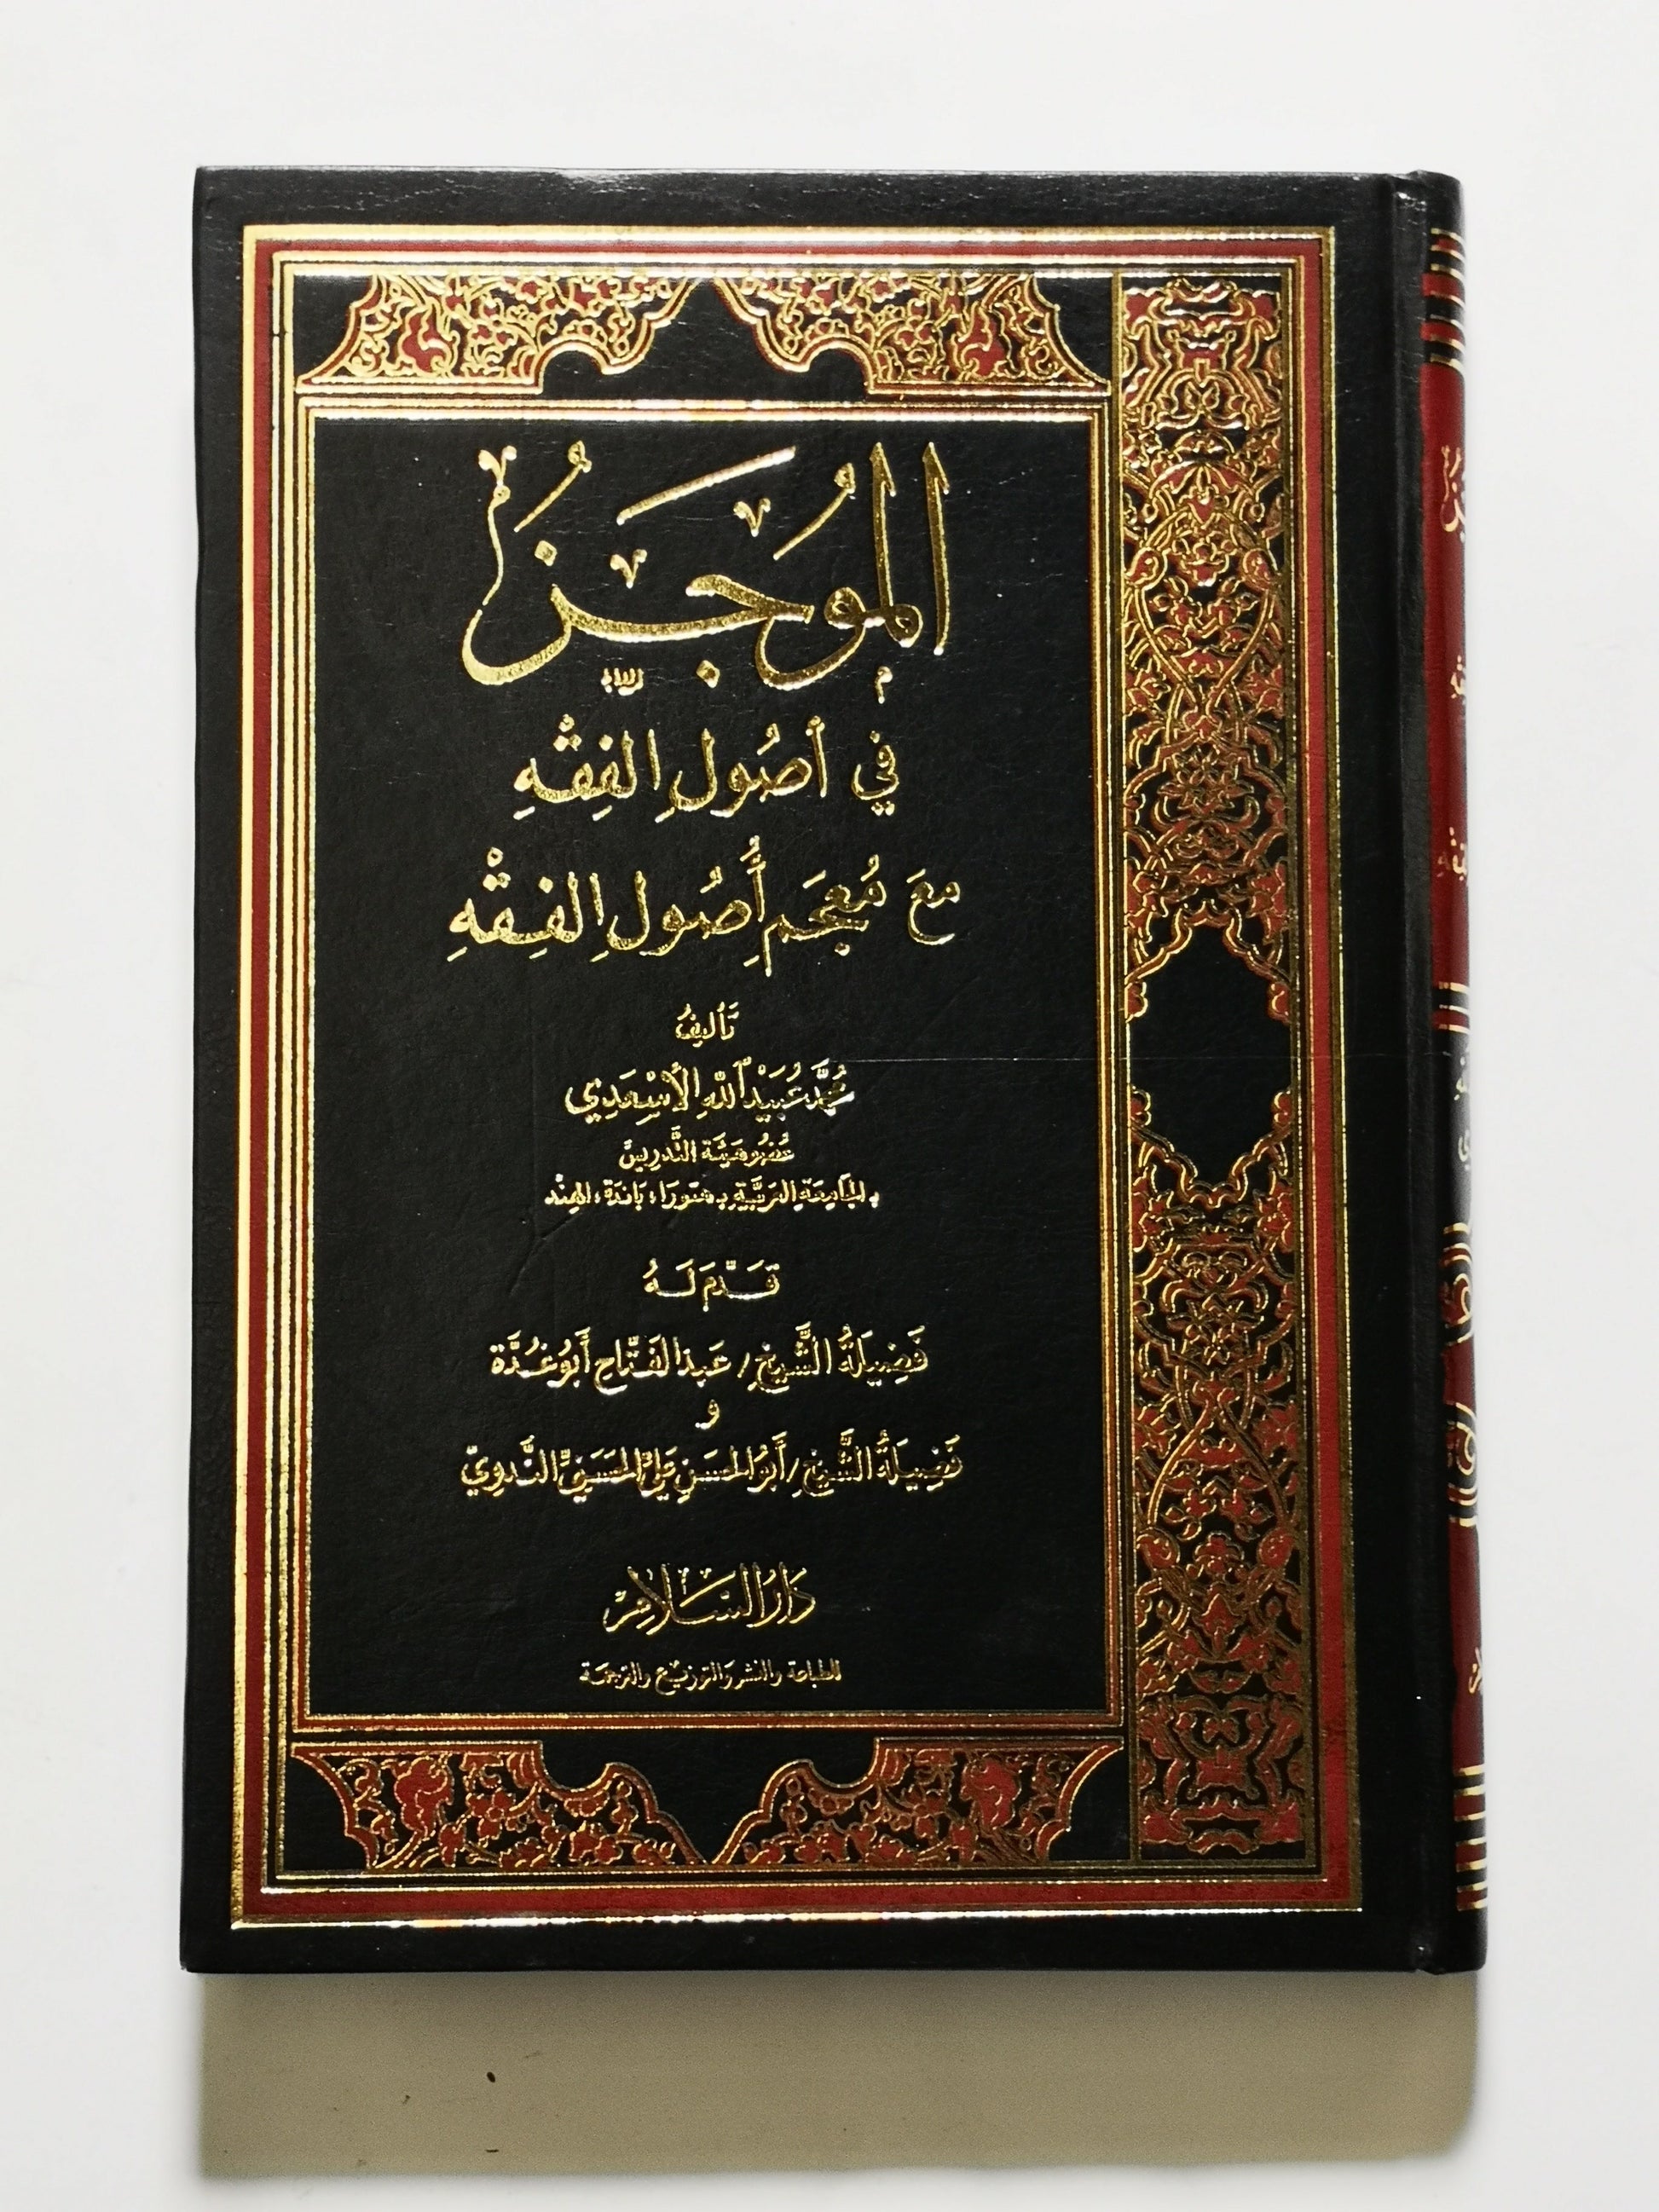 الموُجَزُ
في أصُولِ الفِقْهِ
مَعَ مُعجَم أُصُولِ الفِقْهِ
تَأليفُ
مُحَمَّد عُبَيْد اللهِ الأسْعَدِي
عُضُو هَيئَة التَّدريسْ
بالجَامِعَةِ العَرَبيَّةِ بهَتورَا، بَاندَة، الهِنْد
قَدَّمَ لَهُ
فَضِيلَةُ الشَّيخِ / عَبدالفَتَّاح أَبُوغُدَّة
و
فَضِيلَةُ الشَّيخِ / أَبُوالحَسَنِ عَلي الحَسَنِيّ النَّدوِيّ
دَارُ السَّلامِ
للطباعة والنشر والتوزيع والترجمة